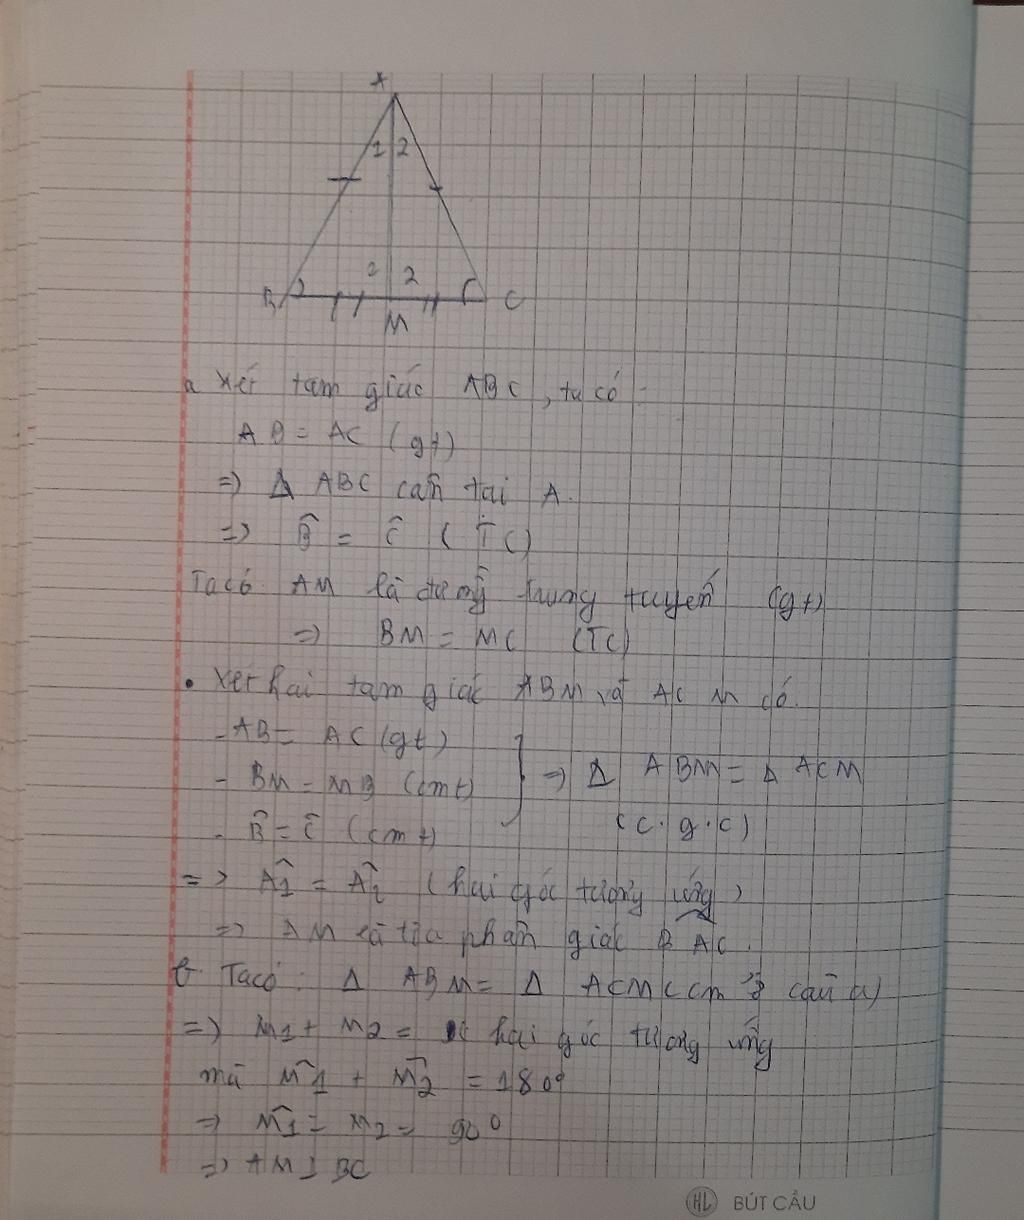 A
1 2
2 2
B M C
a Xét tam giác ABC, ta có:
AB = AC (gt)
=> Δ ABC cân tại A.
=> B̂ = Ĉ (TC)
Ta có: AM là đường trung tuyến (gt)
=> BM = MC (TC)
• Xét hai tam giác ABM và ACM có.
- AB = AC (gt)
- BM = MB (cmt) } => Δ ABM = Δ ACM
- B̂ = Ĉ (cmt) (c.g.c)
=> Â1 = Â2 (hai góc tương ứng)
=> AM là tia phân giác BAC.
b. Ta có: Δ ABM = Δ ACM (cm ở câu a)
=> M1 + M2 = hai góc tương ứng
mà M̂1 + M̂2 = 180°
=> M̂1 = M2 = 90°
=> AM ⊥ BC
HL BÚT CẦU